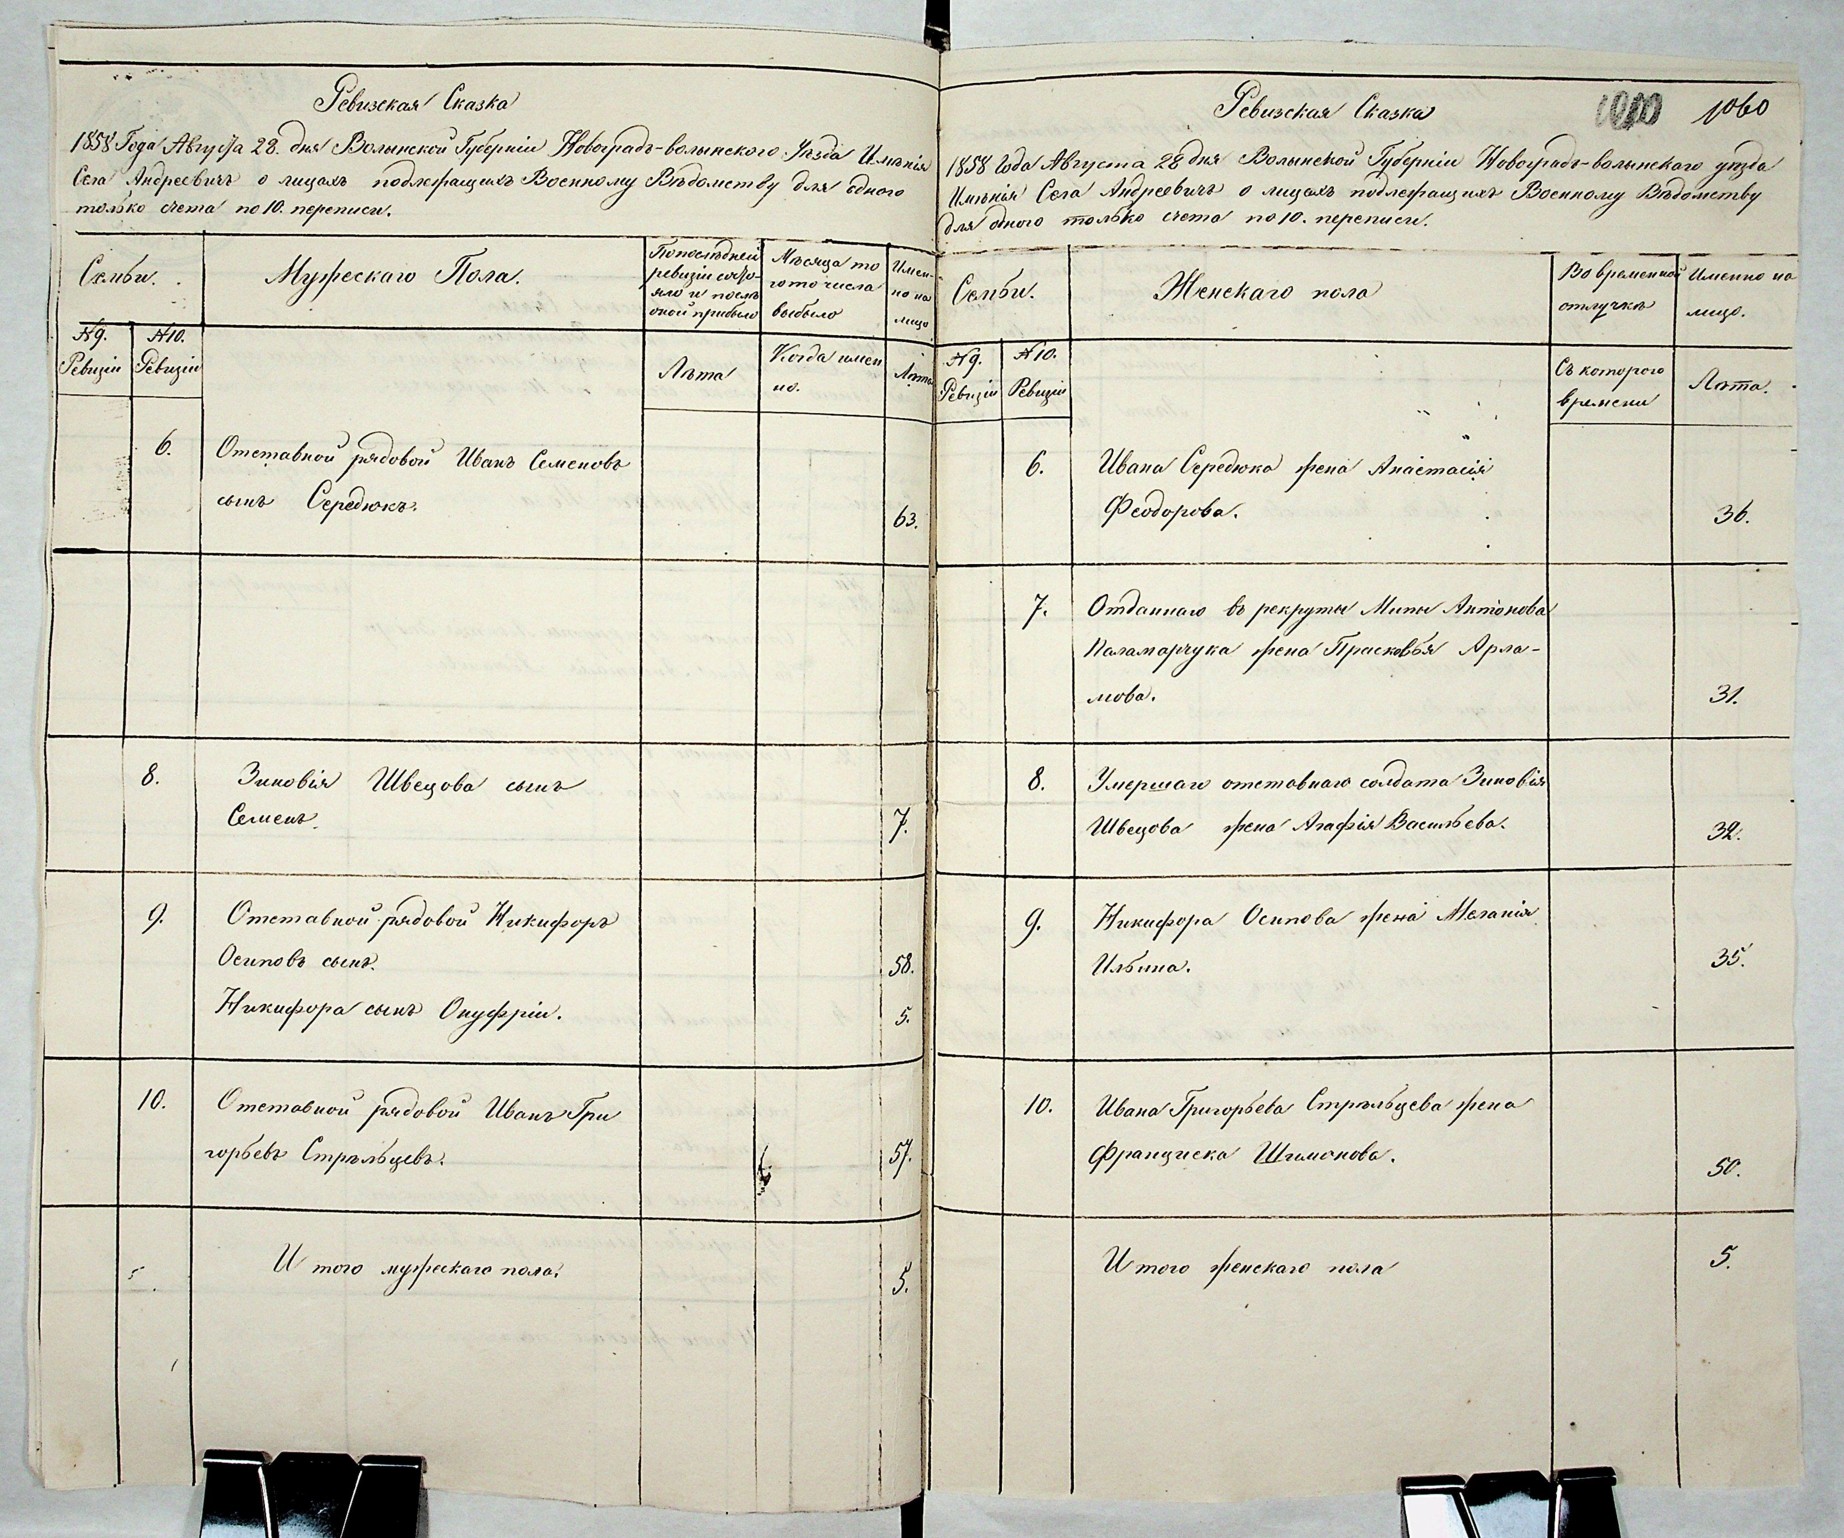 Ревизская Сказка
1858 Года Августа 28. дня Волынской Губерніи Новоградъ-волынского Уѣзда Имѣнія
Села Андреевичъ о лицахъ подлежащихъ Военному Вѣдомству для одного
только счета по 10. переписи.
Семьи.
Мужескаго Пола.
По последней
ревизіи состо-
яло и послѣ
оной прибыло
Мѣсяца то
го то числа
выбыло
Имен-
но на
лицо
№ 9.
Ревизіи
№ 10.
Ревизіи
Лѣта
Когда имен
но.
Лѣта
6. Отставной рядовой Иванъ Семеновъ
сынъ Середюкъ. 63.
8. Зиновія Швецова сынъ
Семенъ. 7.
9. Отставной рядовой Никифоръ
Осиповъ сынъ. 58.
Никифора сынъ Онуфрій. 5.
10. Отставной рядовой Иванъ Гри
горьевъ Стрѣльцевъ. 57.
И того мужескаго пола. 5.
Ревизская Сказка 1060
1858 Года Августа 28 дня Волынской Губерніи Новоградъ-волынскаго уѣзда
Имѣнія Села Андреевичъ о лицахъ подлежащихъ Военному Вѣдомству
для одного только счета по 10. переписи.
Семьи.
Женскаго пола
Во временной
отлучкѣ
Именно на
лицо.
№ 9.
Ревизіи
№ 10.
Ревизіи
Съ котораго
времени
Лѣта.
6. Ивана Середюка жена Анастасія
Феодорова. 36.
7. Отданнаго въ рекруты Мины Антонова
Паламарчука жена Прасковья Арла-
мова. 31.
8. Умершаго отставнаго солдата Зиновія
Швецова жена Агафія Васильева. 32.
9. Никифора Осипова жена Меланія
Ильина. 35.
10. Ивана Григорьева Стрѣльцева жена
Франциска Шимонова. 50.
И того женскаго пола 5.